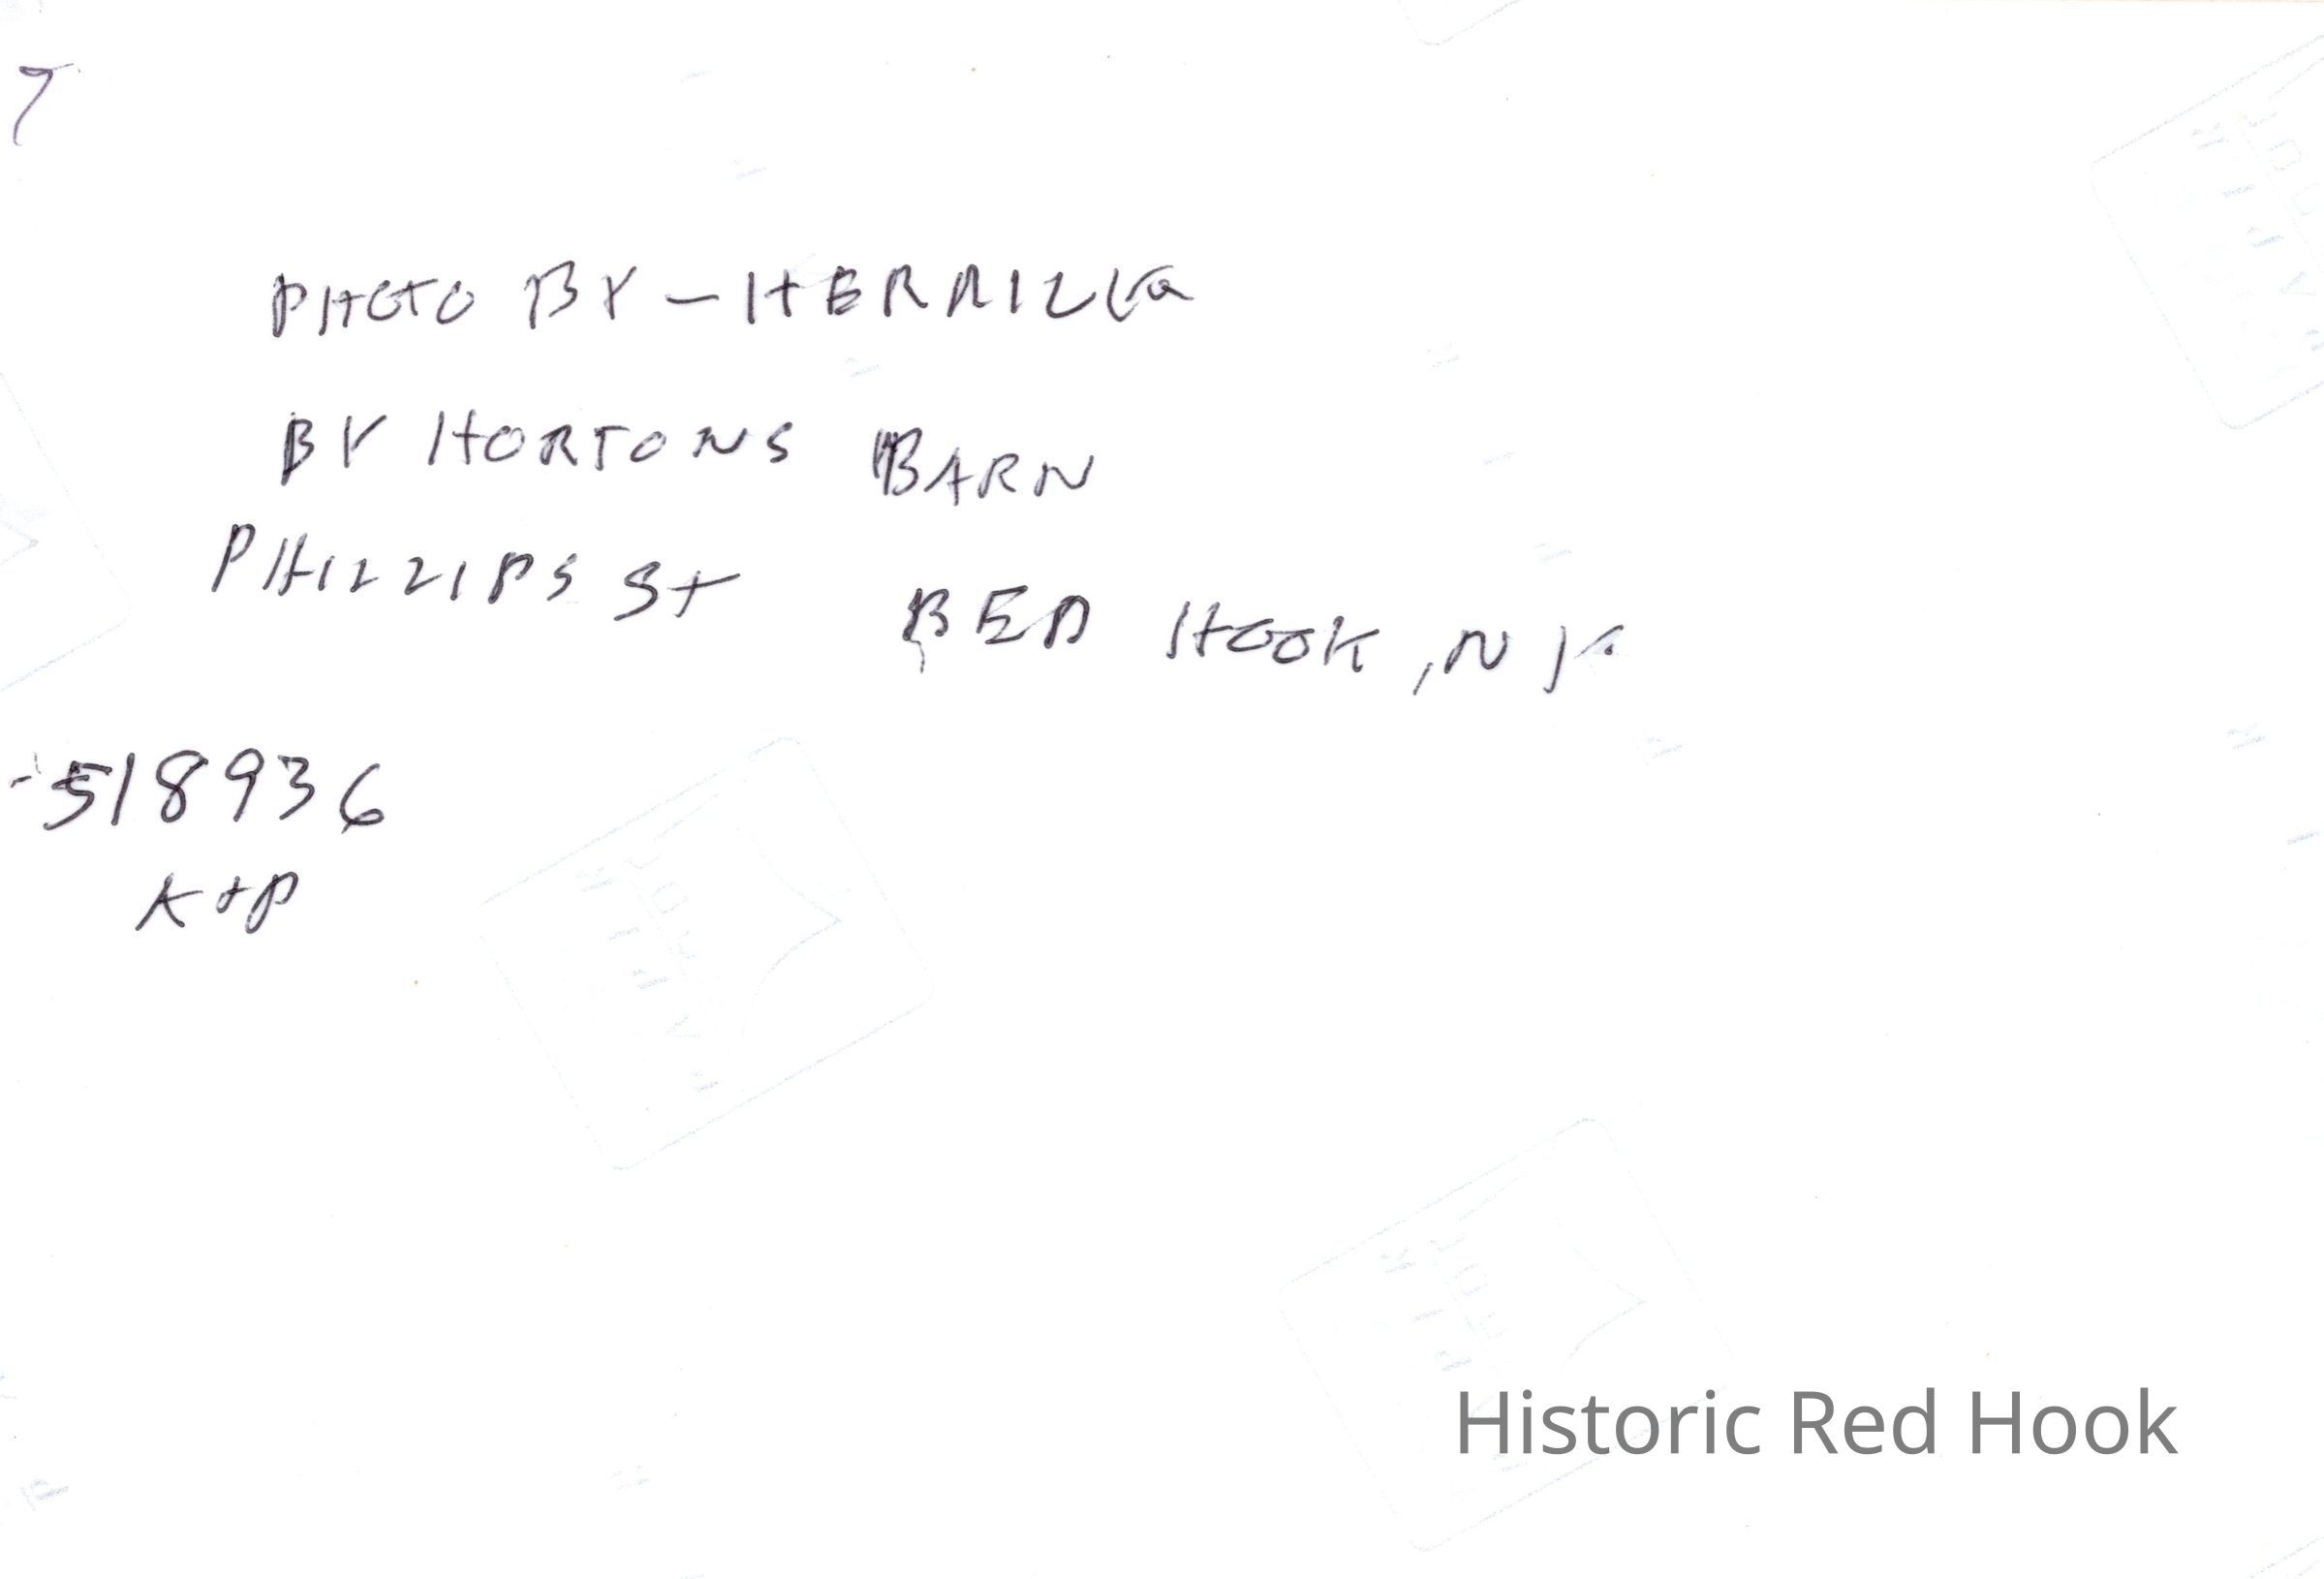 7
PHOTO BY - 
BY HORTONS BARN
PHILLIPS St RED HOOK, NY.
518936
K+P
Historic Red Hook